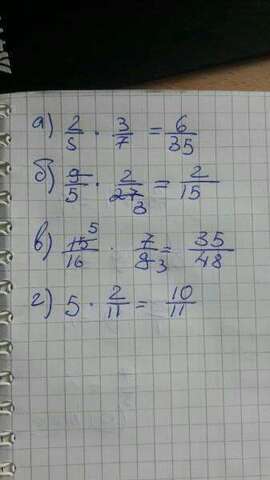 а) 2/5 · 3/7 = 6/35
б) 9/5 · 2/27 3 = 2/15
в) 15 5/16 · 7/9 3 = 35/48
г) 5 · 2/11 = 10/11